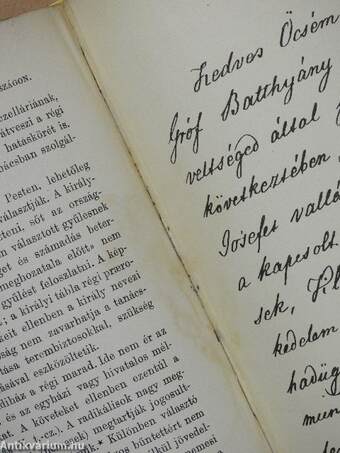 SZÁGON.
czelláriának,
átveszi a régi
hatáskörét is.
bácsban szolgál-
Pesten, lehetőleg
választják. A király-
zteni, sőt az ország-
n választott gyülésnek
get és számadás beter-
meghozatala előtt» nem
gyülést feloszlatni. A kép-
; a királyi tábla régi prero-
keit ellenben a király nevezi
ság nem zavarhatja a tanács-
tása terembiztosokkal, szükség
ásával eszközöltetik.
ház a régi marad. Ide nem ér az
, és az egyházi vagy hivatalos mél-
A követeket ellenben ezentúl a
cz.). A radikálisok nagy meg-
esek) megtartják jogosult-
Különben választó
bűntettért nem
nélkül jövedel-
nemesi
Kedves Öcsém
Gróf Batthyány
veltséged által
következtében
Josefet vallá
a kapcsolt
sek,
kedelem
hadüg
mun
Antikvarium.hu